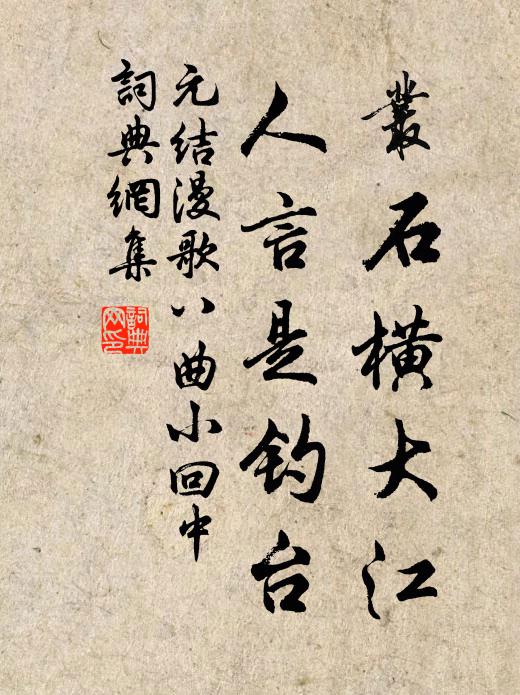 叢石橫大江
人言是钓台
元结漫歌八曲小回中
詞典網集
詞典網印